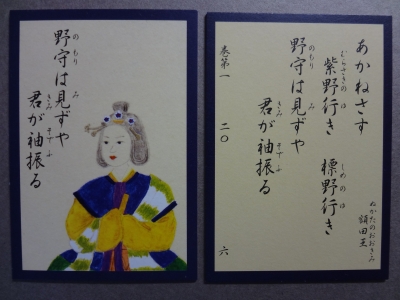 野守は見ずや
のもり み
君が袖振る
きみ そでふ
あかねさす
紫野行き 標野行き
むらさきの ゆ しめの ゆ
野守は見ずや
のもり み
君が袖振る
きみ そでふ
額田王
ぬかたのおおきみ
巻第一 二〇 六